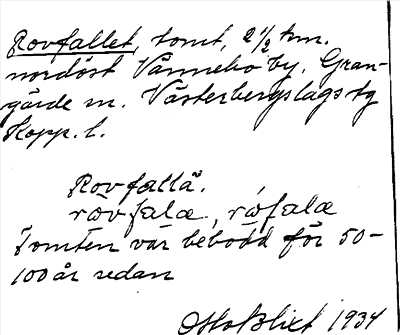 Rovfallet, tomt, 2 1/2 km.
nordöst Vännebo by. Gran-
gärde sn. Västerbergslags tg
Kopp. l.
Rovfallä.
rövfalæ, rófalæ
Tomten var bebodd för 50-
100 år sedan
Otto Blixt 1934